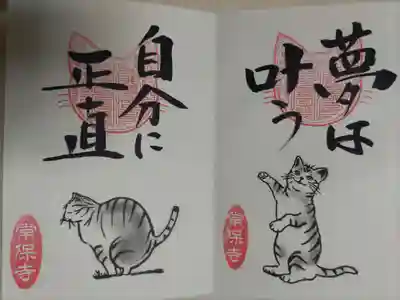 夢は
叶う
常保寺
自分に
正直
常保寺